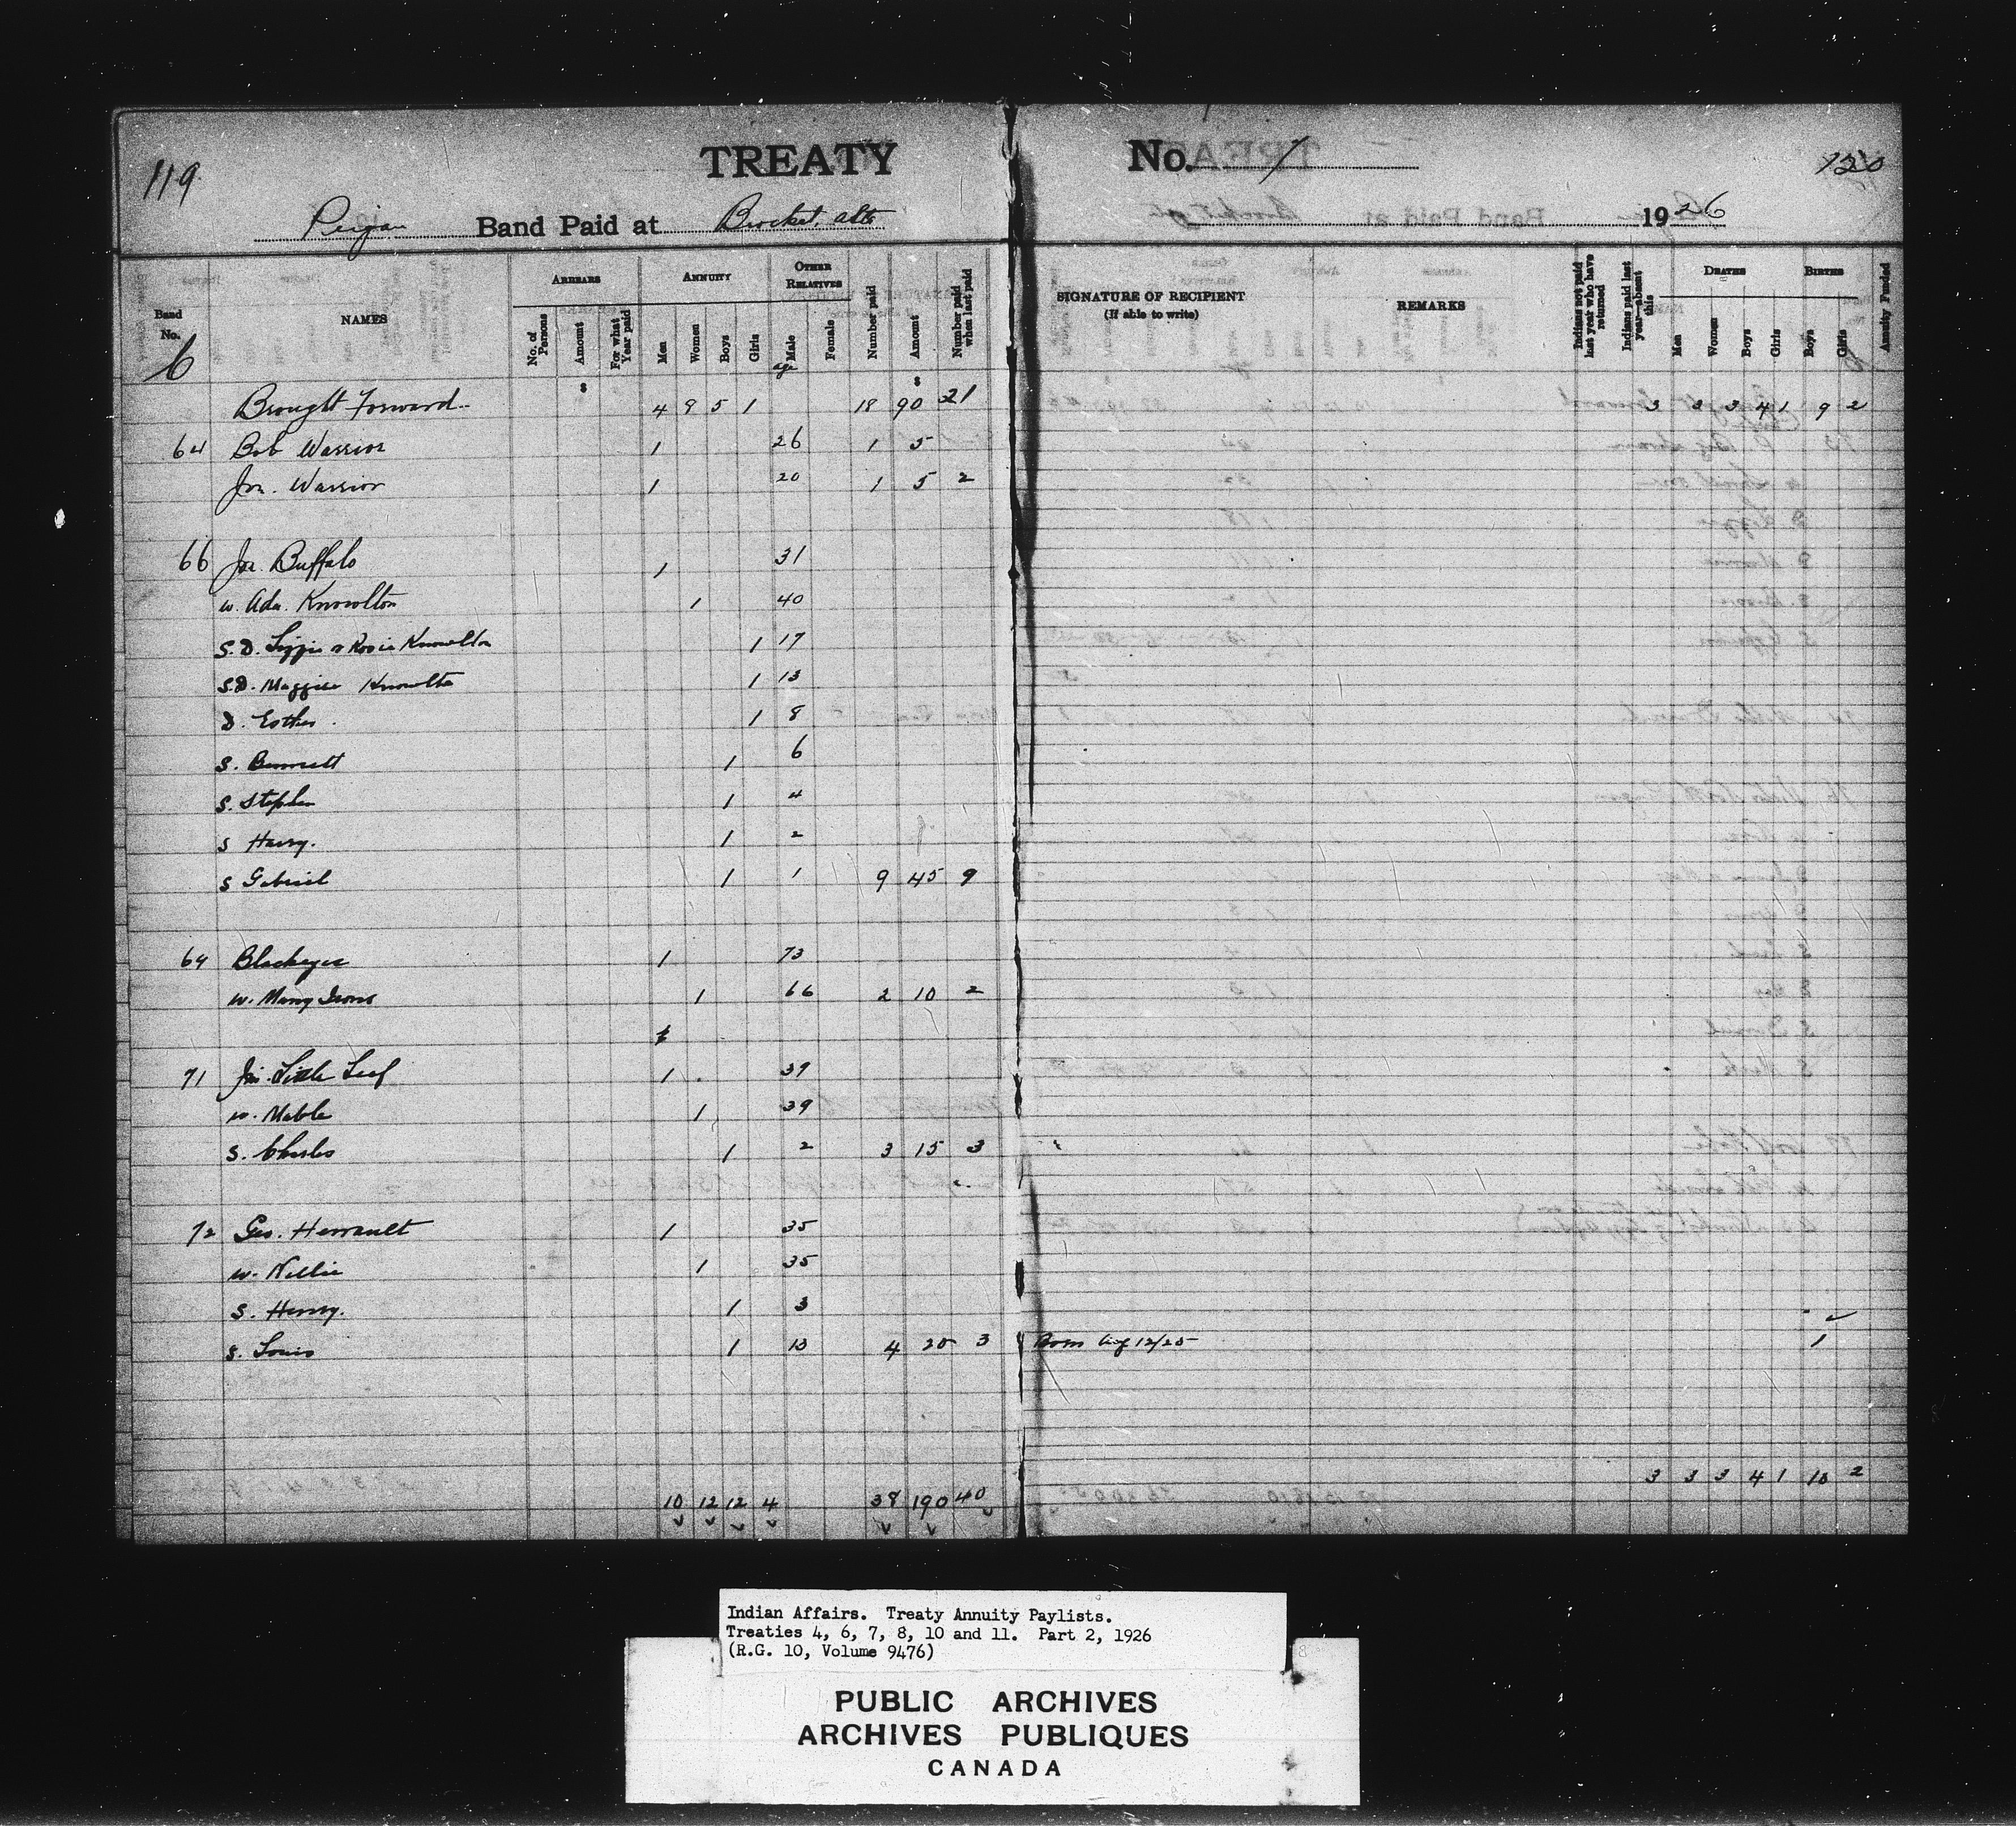 119
TREATY No. 7
120
Peigan Band Paid at Brocket, Alta 1926
Band No. NAMES ARREARS ANNUITY OTHER RELATIVES Number paid Amount Number paid when last paid SIGNATURE OF RECIPIENT (If able to write) REMARKS Indians not paid last year who have returned Indians paid last year—absent this DEATHS BIRTHS Annuity Funded
No. of Persons Amount For what Year paid Men Women Boys Girls Male Female Men Women Boys Girls Boys Girls
6 age
$ $
Brought Forward 4 9 5 1 18 90 21 3 3 3 4 1 9 2
64 Bob Warrior 1 26 1 5
Jon. Warrior 1 20 1 5 2
66 Jon. Buffalo 1 31
w. Ada. Knowlton 1 40
S.D. Lizzie or Rosie Knowlton 1 17
S.D. Maggie Knowlton 1 13
D. Esther 1 8
S. Bennett 1 6
S. Stephen 1 4
S Harry. 1 2
S Gabriel 1 1 9 45 9
69 Blackeyes 1 73
w. Many Irons 1 66 2 10 2
71 Jim Little Leaf 1 39
w. Mable 1 39
S. Charles 1 2 3 15 3
72 Geo. Herrault 1 35
w. Nellie 1 35
S. Henry. 1 3
S. Louis 1 10 4 20 3 Born Aug 12/25 1
10 12 12 4 38 190 40 3 3 3 4 1 10 2
Indian Affairs. Treaty Annuity Paylists.
Treaties 4, 6, 7, 8, 10 and 11. Part 2, 1926
(R.G. 10, Volume 9476)
PUBLIC ARCHIVES
ARCHIVES PUBLIQUES
CANADA